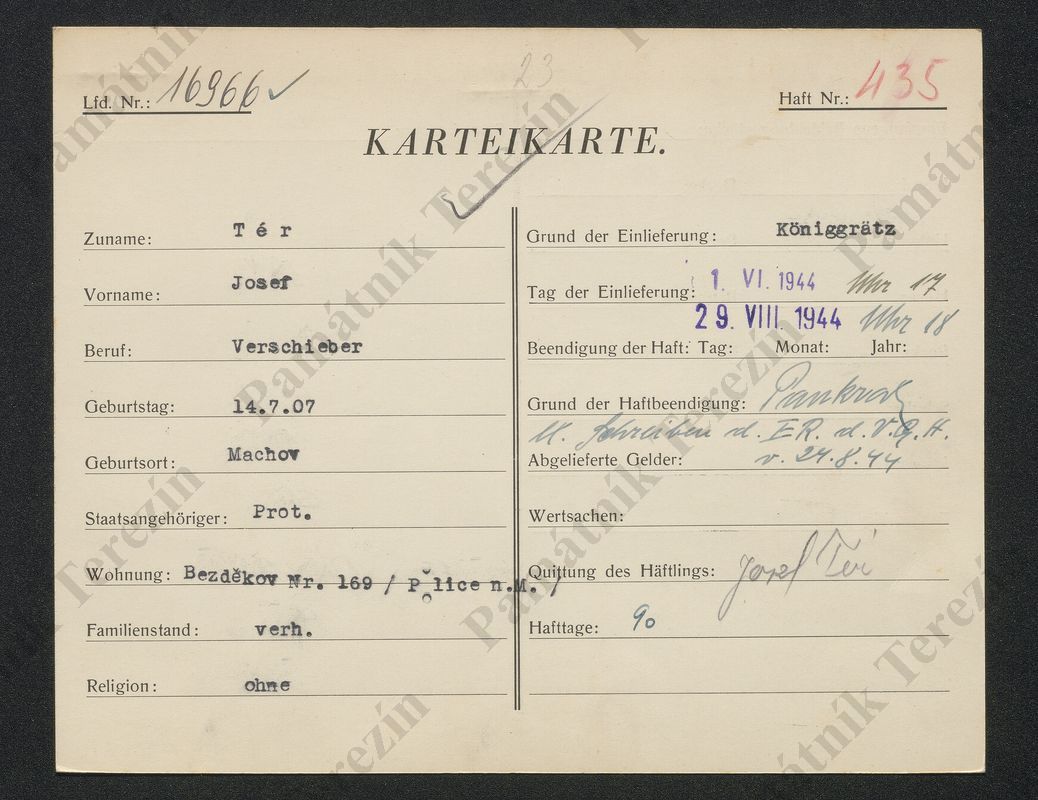 23
Lfd. Nr.: 16966 ✓
Haft Nr.: 435
KARTEIKARTE.
Zuname: Tér
Vorname: Josef
Beruf: Verschieber
Geburtstag: 14.7.07
Geburtsort: Machov
Staatsangehöriger: Prot.
Wohnung: Bezděkov Nr. 169 / Police n.M. /
Familienstand: verh.
Religion: ohne
Grund der Einlieferung: Königgrätz
Tag der Einlieferung: 1. VI. 1944 Uhr 17
29. VIII. 1944 Uhr 18
Beendigung der Haft: Tag: Monat: Jahr:
Grund der Haftbeendigung: Pankratz
lt. Schreiben d. ER. d. V.G.H.
v. 24.8.44
Abgelieferte Gelder:
Wertsachen:
Quittung des Häftlings: Josef Tér
Hafttage: 90
Památník Terezín
Památník Terezín
Památník Terezín
Památník Terezín
Památník Terezín